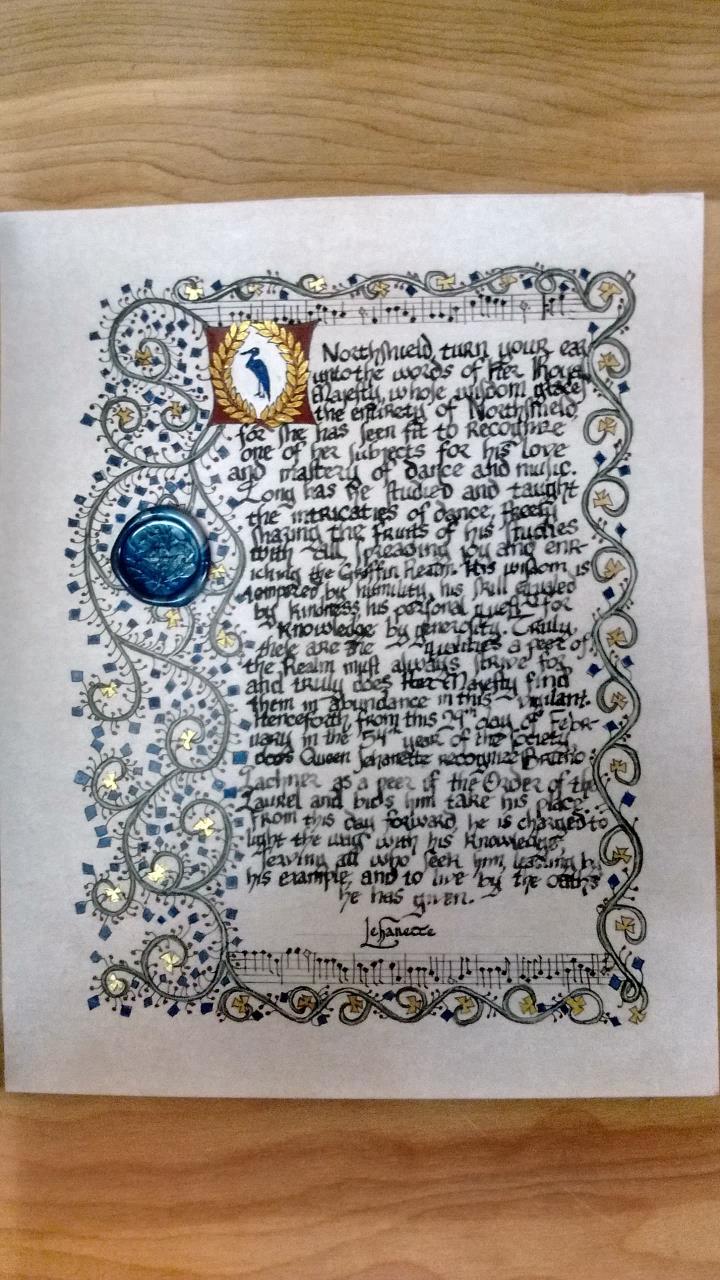 Northshield, turn your ear
unto the words of Her Royal
Majesty, whose wisdom graces
the entirety of Northshield,
for she has seen fit to recognize
one of her subjects for his love
and mastery of dance and music.
Long has he studied and taught
the intricaties of dance, freely
sharing the fruits of his studies
with all, spreading joy and enr-
iching the Griffin Realm. His wisdom is
tempered by humility, his skill equaled
by kindness, his personal quest for
knowledge by generosity. Truly,
these are the qualities a peer of
the Realm must always strive for
and truly does Her Majesty find
them in abundance in this vigilant.
Henceforth, from this 29th day of Febr-
uary in the 54th year of the Society
does Queen Jehanette recognize
Lachner as a peer of the Order of the
Laurel and bids him take his place.
From this day forward, he is charged to
light the way with his knowledge,
leaving all who seek him, leading by
his example, and to live by the oaths
he has given.
Jehanette